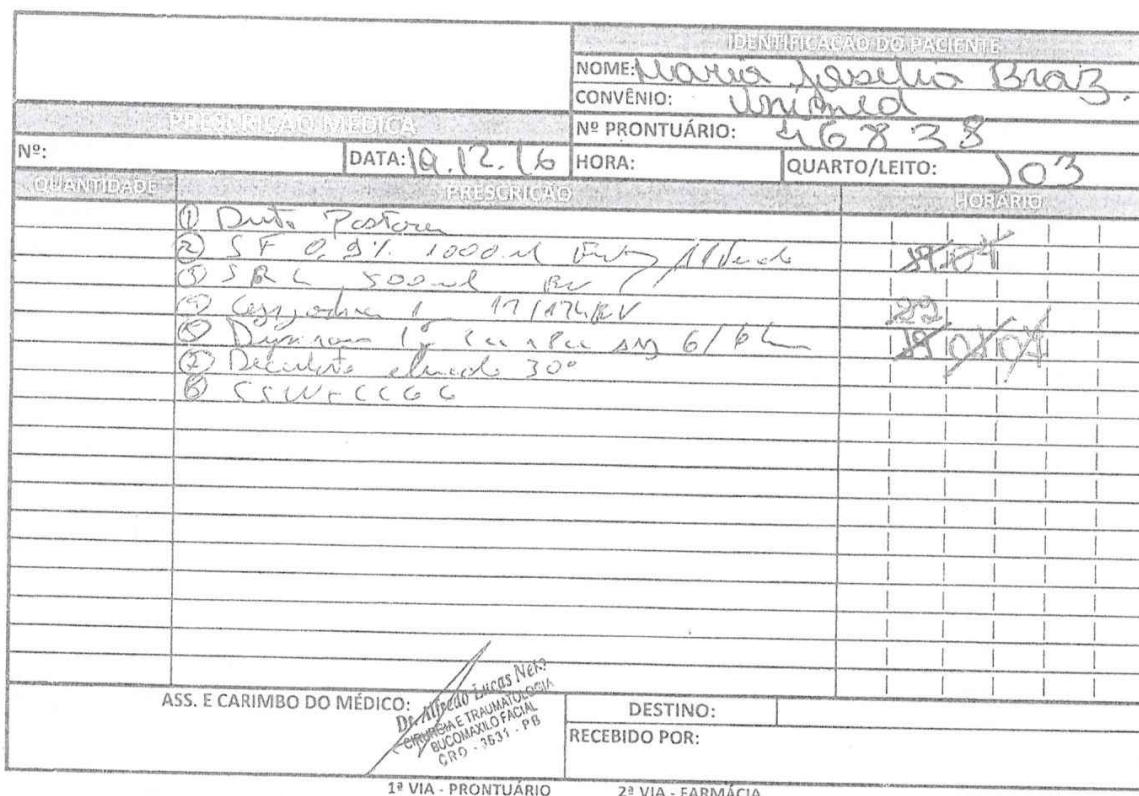 IDENTIFICAÇÃO DO PACIENTE
NOME: Maria Braz.
CONVÊNIO: Unimed
PRESCRIÇÃO MÉDICA
Nº PRONTUÁRIO: 46838
Nº: DATA: 19.12.16 HORA: QUARTO/LEITO: 103
QUANTIDADE PRESCRIÇÃO HORÁRIO
① Dieta Pastosa
② SF 0,9% 1000ml
③ SRL 500ml EV
12/12h EV 22
⑤ Dipirona 6/6h
Decúbito elevado 30º
⑥ SSVV + CCGG
ASS. E CARIMBO DO MÉDICO:
Dr. Alfredo Lucas Neto
CIRURGIA E TRAUMATOLOGIA
BUCOMAXILO FACIAL
CRO - 3631 - PB
DESTINO:
RECEBIDO POR:
1ª VIA - PRONTUÁRIO 2ª VIA - FARMÁCIA